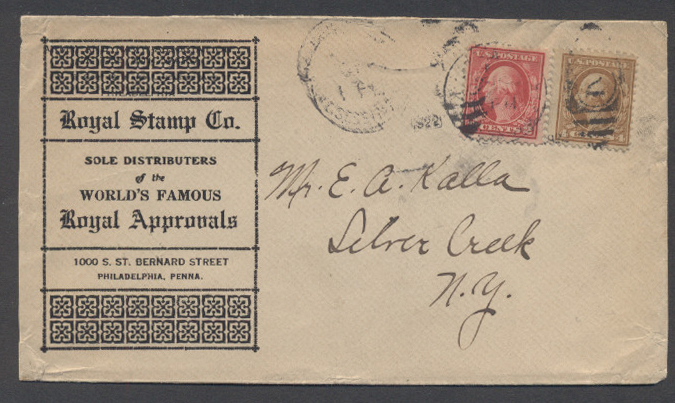 Royal Stamp Co.
SOLE DISTRIBUTERS
of the
WORLD'S FAMOUS
Royal Approvals
1000 S. ST. BERNARD STREET
PHILADELPHIA, PENNA.
U.S. POSTAGE
CENTS 2
U.S. POSTAGE
1922
Mr. E. A. Kalla
Silver Creek
N.Y.